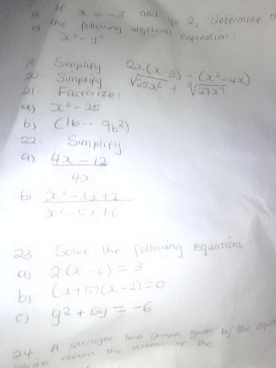 18 If x = -3 and y = 2, determine the
of the following algebraic expression.
x² - y²
19 Simplify 2x(x - 3) - (x² - 4x)
20. Simplify √25x⁶ + ∛27x⁹
21. Factorize:
a) x² - 25
b) (16 - 9b²)
22. Simplify
a) 4x - 12
4x
b) x² - 3x + 2
x² - 5x + 6
23 Solve the following equations
a) 2(x - ) = 3
b) (x + 5)(x - 2) = 0
c) y² + 5y = -6
24. A straight line given by the